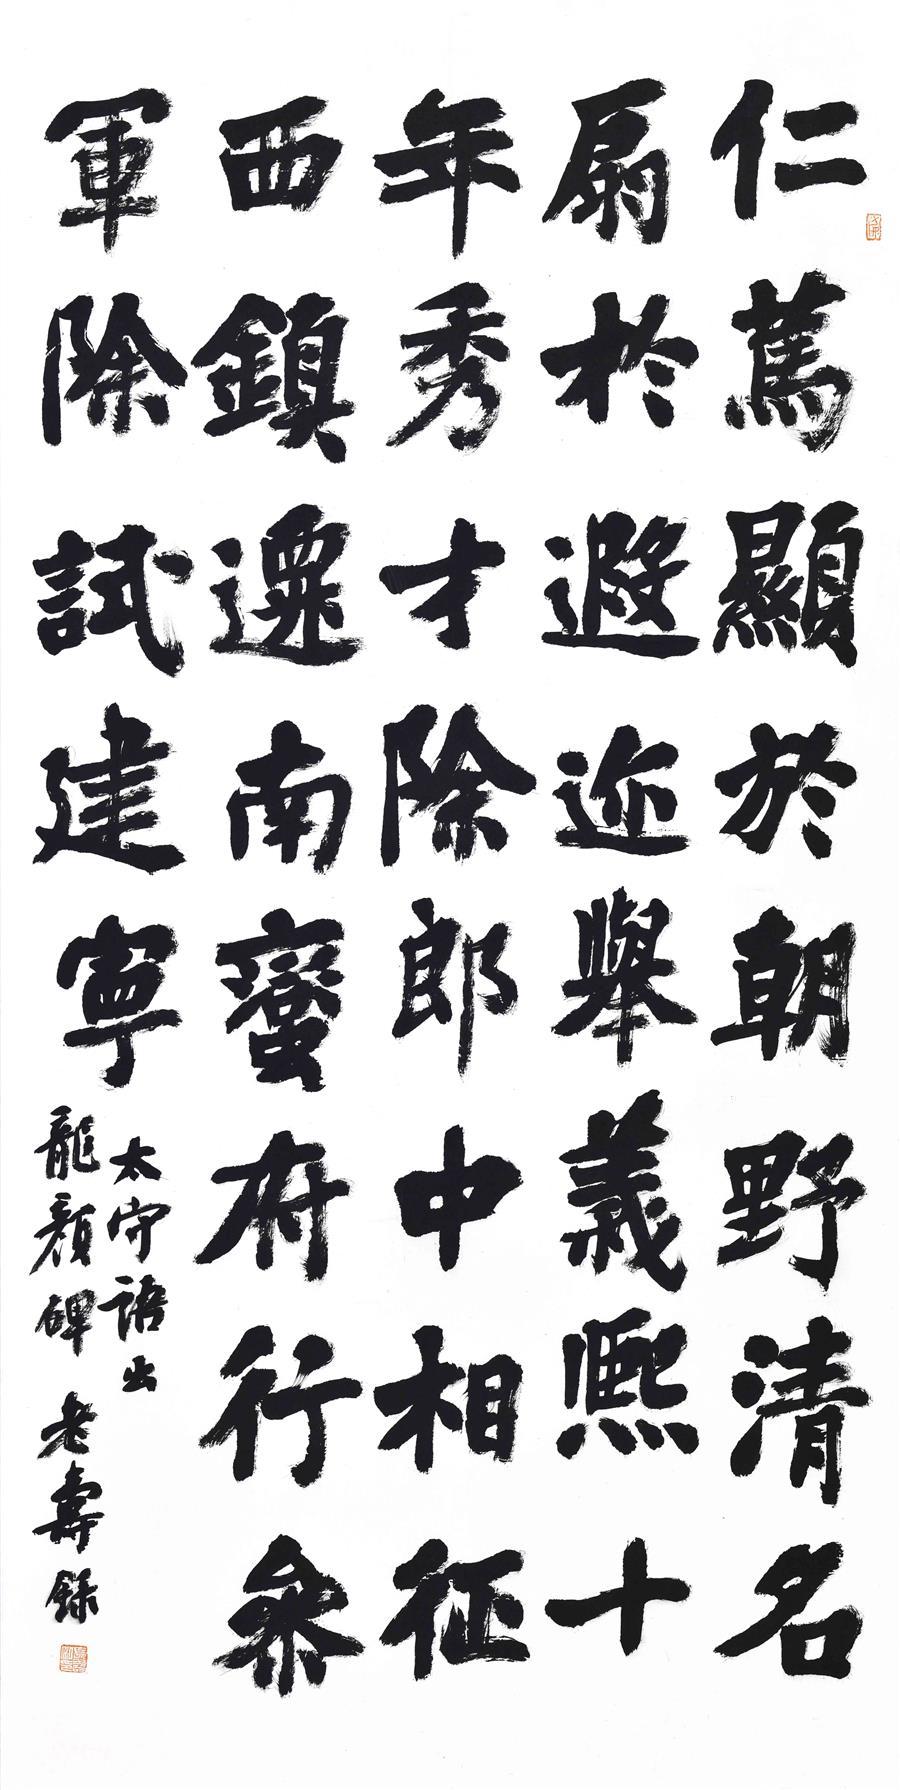 仁篤顯於朝野清名
扇於遐迩舉義熙十
年秀才除郎中相征
西鎮遷南蠻府行參
軍除試建寧
太守語出
龍顏碑 老壽錄